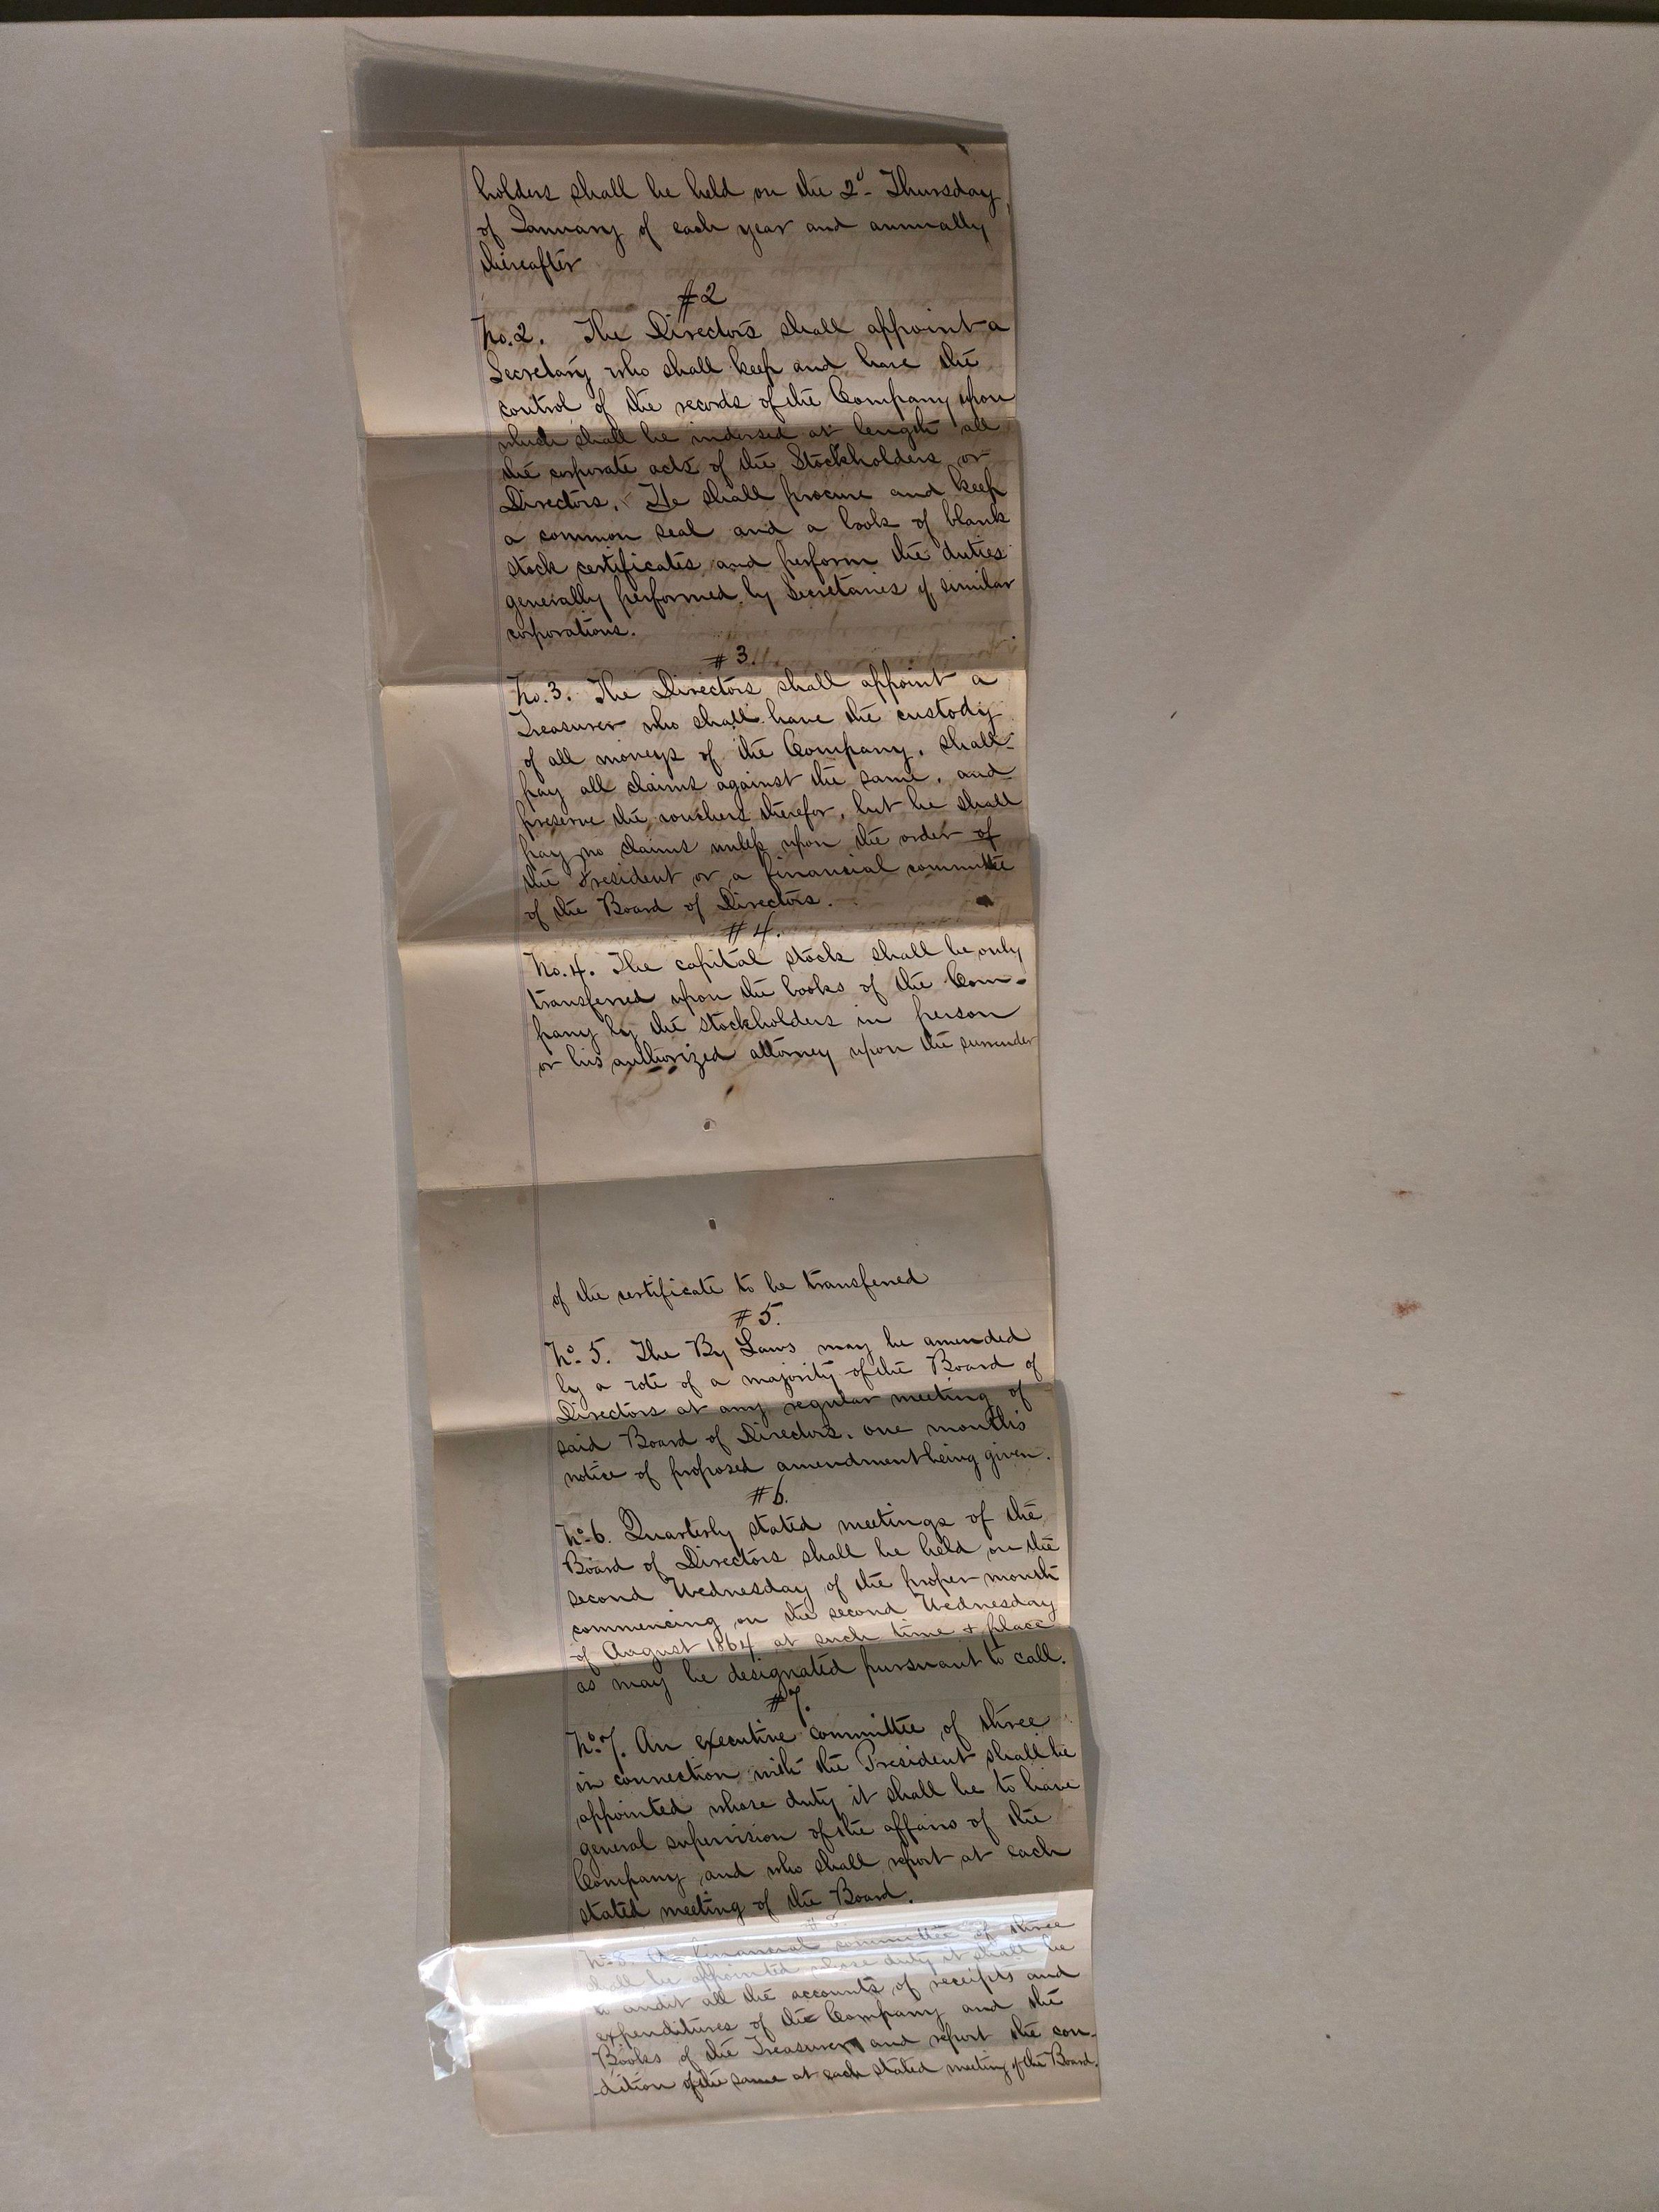 holders shall be held on the 2d Thursday
of January of each year and annually
thereafter
#2
No. 2. The Directors shall appoint a
Secretary who shall keep and have the
control of the records of the Company upon
which shall be indorsed at length all
the corporate acts of the Stockholders or
Directors. He shall procure and keep
a common seal and a book of blank
stock certificates and perform the duties
generally performed by Secretaries of similar
corporations.
#3.
No. 3. The Directors shall appoint a
Treasurer who shall have the custody
of all moneys of the Company, shall
pay all claims against the same, and
preserve the vouchers therefor, but he shall
pay no claims unless upon the order of
the President or a financial committee
of the Board of Directors.
#4.
No. 4. The capital stock shall be only
transferred upon the books of the Com-
pany by the stockholders in person
or his authorized attorney upon the surrender
of the certificate to be transferred
#5.
No. 5. The By Laws may be amended
by a vote of a majority of the Board of
Directors at any regular meeting of
said Board of Directors, one months
notice of proposed amendment being given.
#6.
No. 6. Quarterly stated meetings of the
Board of Directors shall be held on the
second Wednesday of the proper month
commencing on the second Wednesday
of August 1864 at such time & place
as may be designated pursuant to call.
#7.
No. 7. An executive committee of three
in connection with the President shall be
appointed whose duty it shall be to have
general supervision of the affairs of the
Company and who shall report at each
stated meeting of the Board.
No. 8. A financial committee of three
shall be appointed whose duty it shall be
to audit all the accounts of receipts and
expenditures of the Company and the
Books of the Treasurer and report the con-
dition of the same at each stated meeting of the Board.